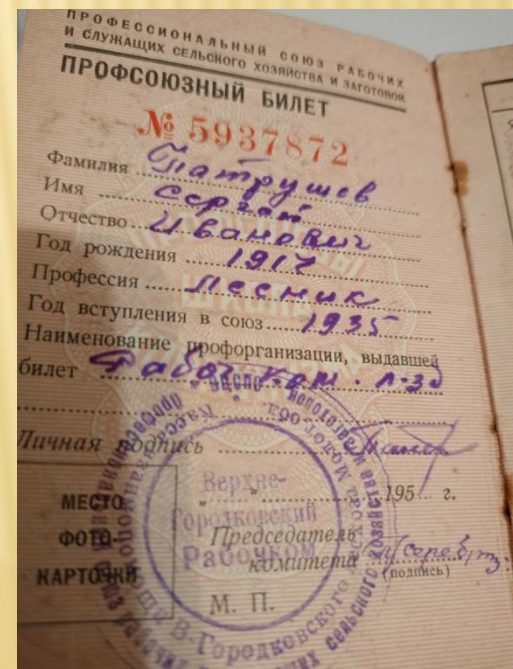 ПРОФЕССИОНАЛЬНЫЙ СОЮЗ РАБОЧИХ
И СЛУЖАЩИХ СЕЛЬСКОГО ХОЗЯЙСТВА И ЗАГОТОВОК
ПРОФСОЮЗНЫЙ БИЛЕТ
№ 5937872
Фамилия Патрушев
Имя Сергей
Отчество Иванович
Год рождения 1917
Профессия лесник
Год вступления в союз 1935
Наименование профорганизации, выдавшей
билет Рабоч. ком.
Личная подпись
195 г.
МЕСТО
ФОТО-
КАРТОЧКИ
Председатель
комитета
(подпись)
М. П.
Верхне-
Городковский
Рабочком